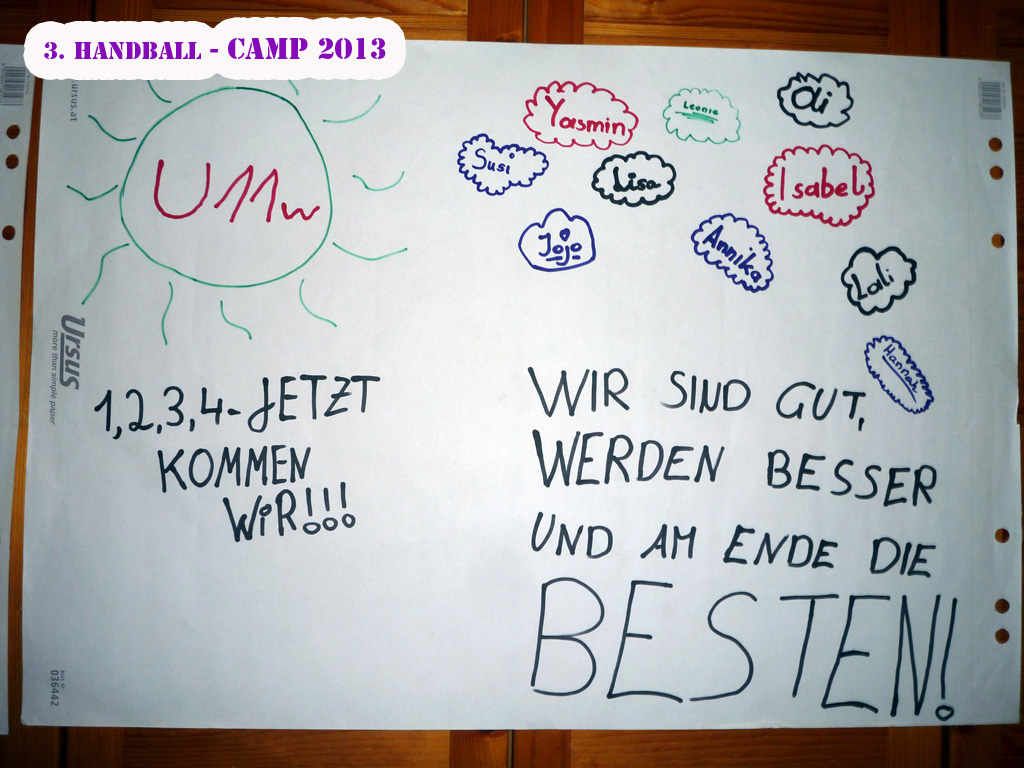 3. HANDBALL - CAMP 2013
ursus.at
U11w
Yasmin
Leonie
Susi
Lisa
Isabel
Jojo
Annika
Lali
Hannah
Ursus
more than simple paper
1,2,3,4-JETZT
KOMMEN
WIR!!!
WIR SIND GUT,
WERDEN BESSER
UND AM ENDE DIE
BESTEN!
036442